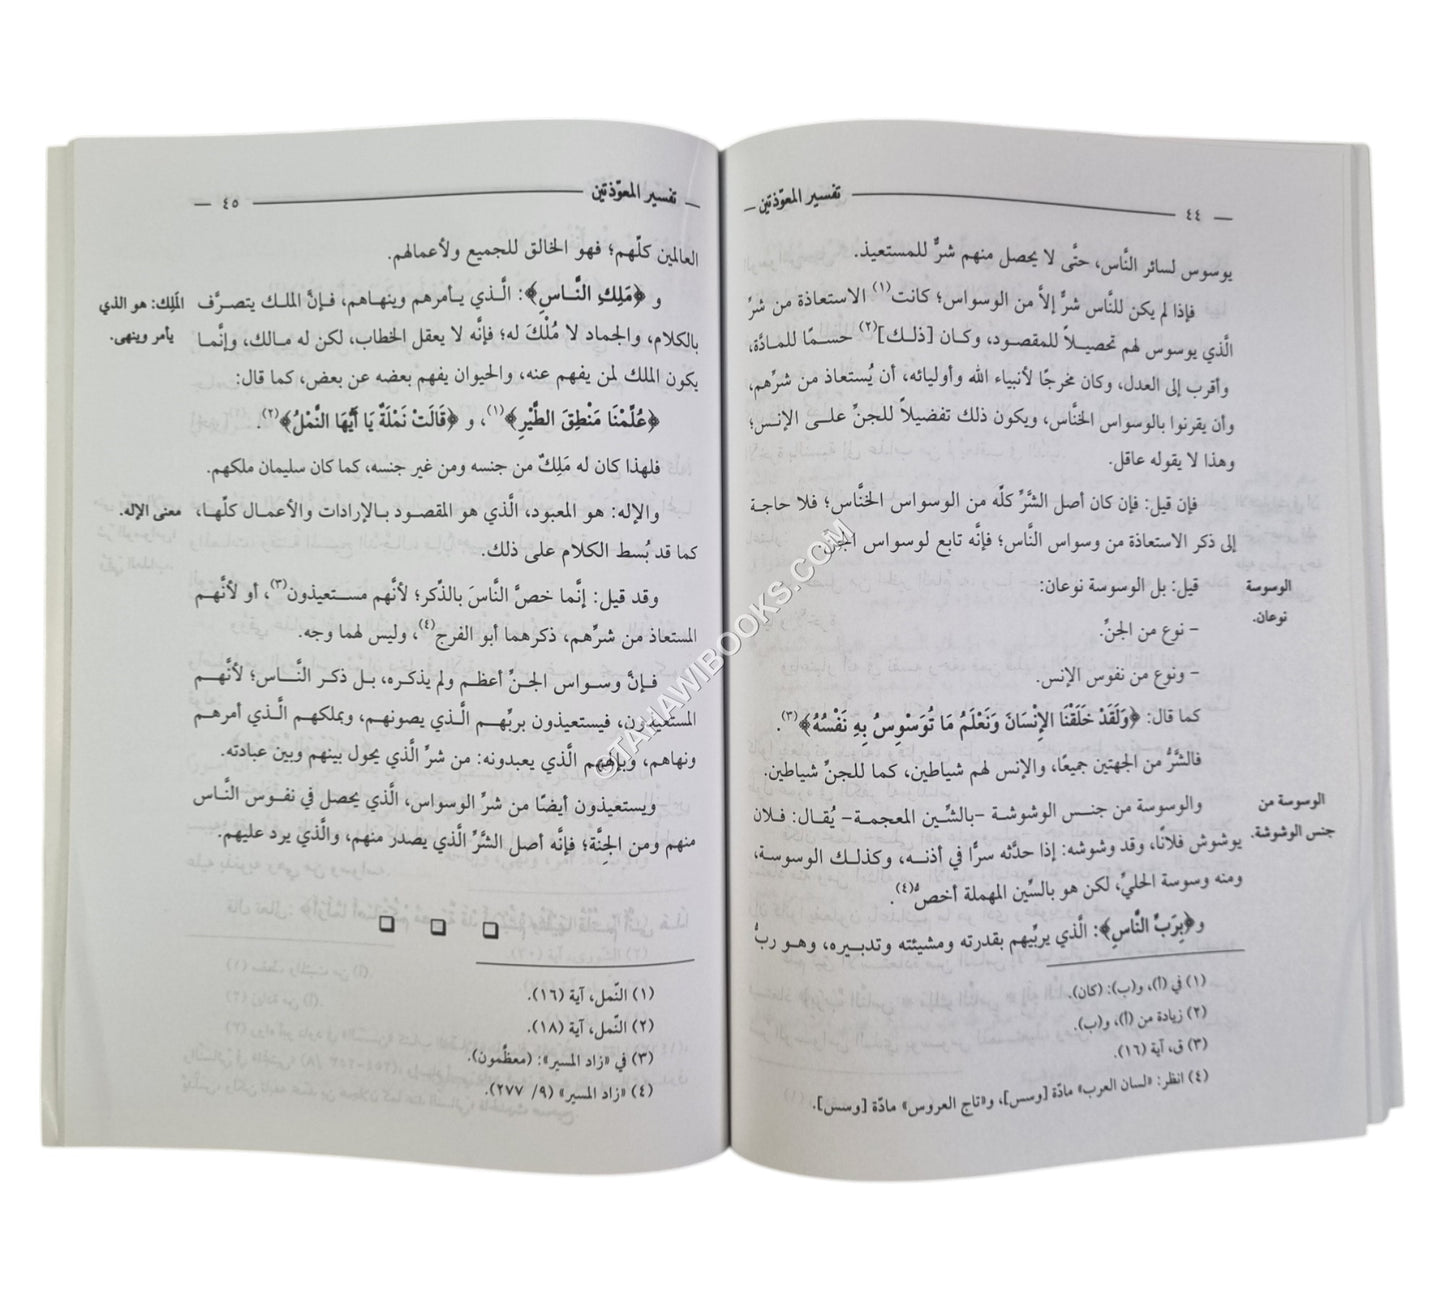 — ٤٤ — تفسير المعوّذتين —
يوسوس لسائر النَّاس، حتَّى لا يحصل منهم شرٌّ للمستعيذ.
فإذا لم يكن للنَّاس شرٌّ إلاَّ من الوسواس؛ كانت(١) الاستعاذة من شرِّ
الَّذي يوسوس لهم تحصيلاً للمقصود، وكان [ذلك](٢) حسمًا للمادَّة،
وأقرب إلى العدل، وكان مخرجًا لأنبياء الله وأوليائه، أن يُستعاذ من شرِّهم،
وأن يقرنوا بالوسواس الخنَّاس، ويكون ذلك تفضيلاً للجنِّ على الإنس؛
وهذا لا يقوله عاقل.
فإن قيل: فإن كان أصل الشَّرِّ كلّه من الوسواس الخنَّاس؛ فلا حاجة
إلى ذكر الاستعاذة من وسواس النَّاس؛ فإنَّه تابع لوسواس الجنِّ.
قيل: بل الوسوسة نوعان:
الوسوسة
نوعان.
– نوع من الجنِّ.
– ونوع من نفوس الإنس.
كما قال: ﴿وَلَقَدْ خَلَقْنَا الإِنْسَانَ وَنَعْلَمُ مَا تُوَسْوِسُ بِهِ نَفْسُهُ﴾(٣).
فالشَّرُّ من الجهتين جميعًا، والإنس لهم شياطين، كما للجنِّ شياطين.
والوسوسة من جنس الوشوشة –بالشِّين المعجمة– يُقال: فلان
الوسوسة من
جنس الوشوشة.
يوشوش فلانًا، وقد وشوشه: إذا حدَّثه سرًّا في أذنه، وكذلك الوسوسة،
ومنه وسوسة الحليِّ، لكن هو بالسِّين المهملة أخصُّ(٤).
و﴿بِرَبِّ النَّاسِ﴾: الَّذي يربِّيهم بقدرته ومشيئته وتدبيره، وهو ربُّ
(١) في (أ)، و(ب): (كان).
(٢) زيادة من (أ)، و(ب).
(٣) ق، آية (١٦).
(٤) انظر: «لسان العرب» مادّة [وسس]، و«تاج العروس» مادّة [وسس].
— تفسير المعوّذتين — ٤٥ —
العالمين كلّهم؛ فهو الخالق للجميع ولأعمالهم.
و ﴿مَلِكِ النَّاسِ﴾: الَّذي يأمرهم وينهاهم، فإنَّ الملك يتصرَّف
الملِك: هو الذي
يأمر وينهى.
بالكلام، والجماد لا مُلْكَ له؛ فإنَّه لا يعقل الخطاب، لكن له مالك، وإنَّما
يكون الملك لمن يفهم عنه، والحيوان يفهم بعضه عن بعض، كما قال:
﴿عُلِّمْنَا مَنْطِقَ الطَّيْرِ﴾(١)، و ﴿قَالَتْ نَمْلَةٌ يَا أَيُّهَا النَّمْلُ﴾(٢).
فلهذا كان له مَلِكٌ من جنسه ومن غير جنسه، كما كان سليمان ملكهم.
والإله: هو المعبود، الَّذي هو المقصود بالإرادات والأعمال كلّها،
معنى الإله.
كما قد بُسط الكلام على ذلك.
وقد قيل: إنَّما خصَّ النَّاسَ بالذِّكر؛ لأنَّهم مستعيذون(٣)، أو لأنَّهم
المستعاذ من شرِّهم، ذكرهما أبو الفرج(٤)، وليس لهما وجه.
فإنَّ وسواس الجنِّ أعظم ولم يذكره، بل ذكر النَّاس؛ لأنَّهم
المستعيذون، فيستعيذون بربِّهم الَّذي يصونهم، وبملكهم الَّذي أمرهم
ونهاهم، وبإلههم الَّذي يعبدونه: من شرِّ الَّذي يحول بينهم وبين عبادته.
ويستعيذون أيضًا من شرِّ الوسواس، الَّذي يحصل في نفوس النَّاس
منهم ومن الجِنَّة؛ فإنَّه أصل الشَّرِّ الَّذي يصدر منهم، والَّذي يرد عليهم.
(١) النّمل، آية (١٦).
(٢) النّمل، آية (١٨).
(٣) في «زاد المسير»: (معظَّمون).
(٤) «زاد المسير» (٩/ ٢٧٧).
©TAHAWIBOOKS.COM